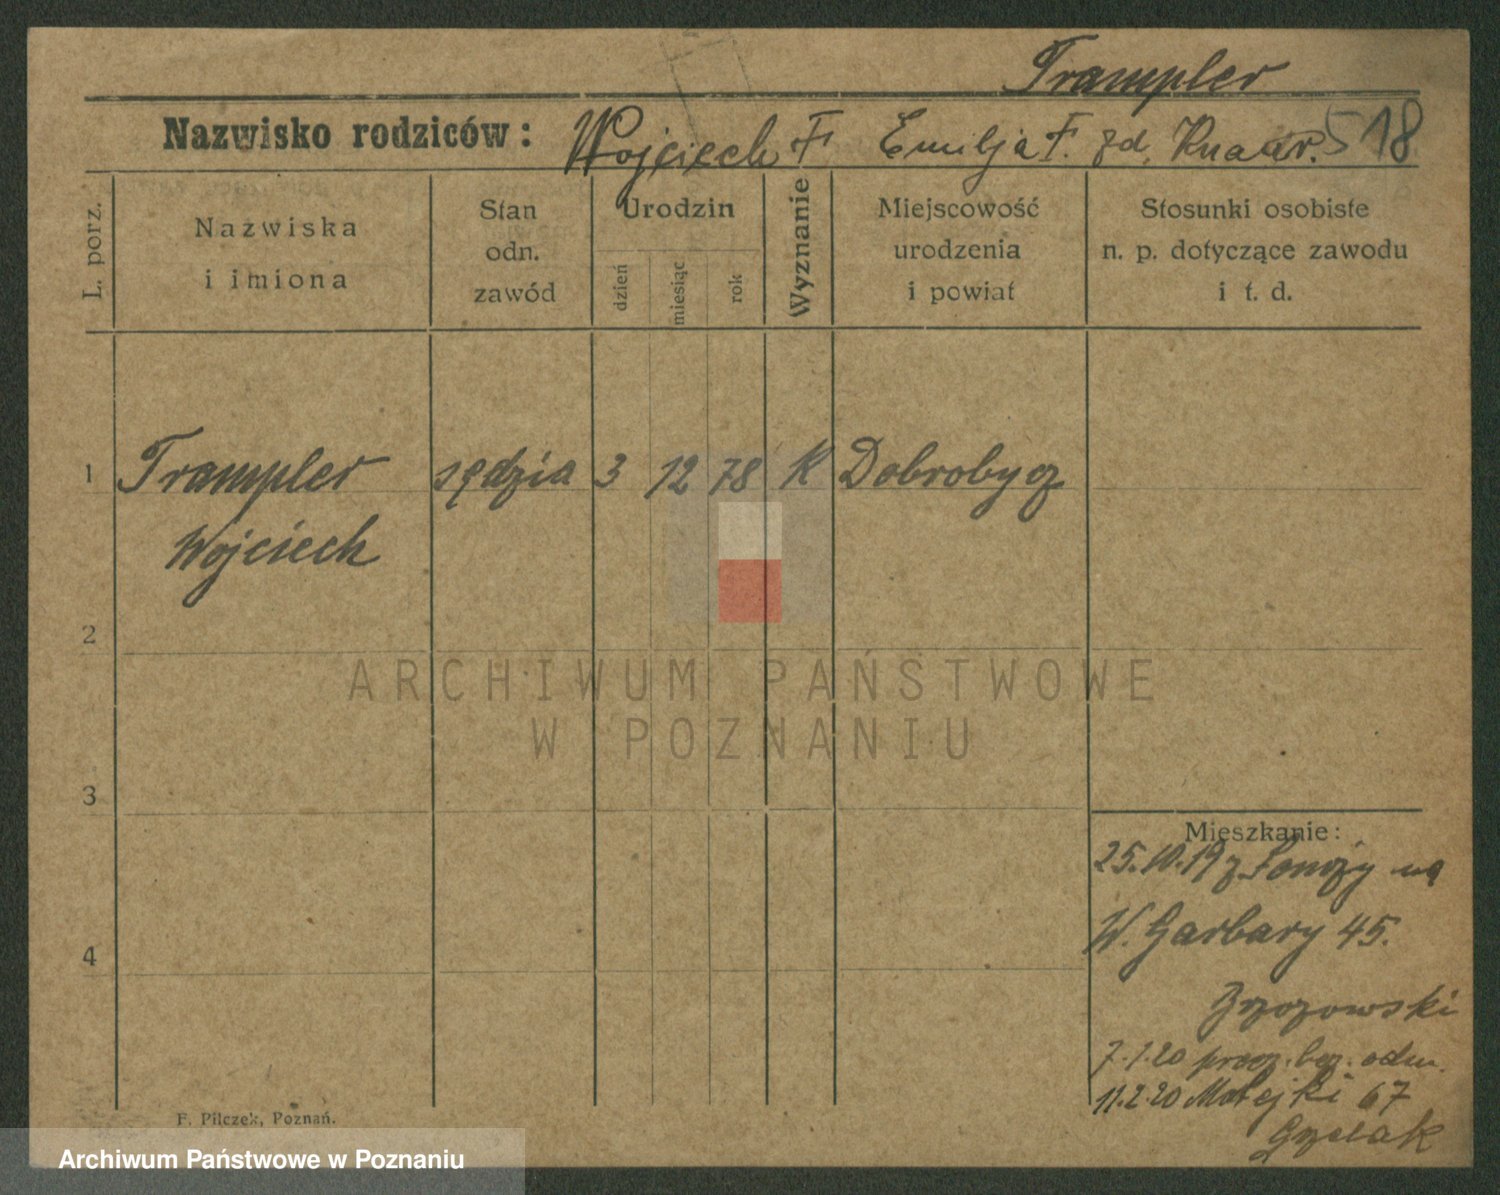 Trampler
Nazwisko rodziców: Wojciech F Emilja F. zd. Knaar. 518
L. porz.
Nazwiska
i imiona
Stan
odn.
zawód
Urodzin
dzień
miesiąc
rok
Wyznanie
Miejscowość
urodzenia
i powiat
Stosunki osobiste
n. p. dotyczące zawodu
i t. d.
1 Trampler sędzia 3 12 78 K Dobrobycz
Wojciech
2
3
4
Mieszkanie:
25.10.19 z na
W. Garbary 45.
7.1.20 odm.
11.2.20 Matejki 67
Gzelak
F. Pilczek, Poznań.
ARCHIWUM PAŃSTWOWE
W POZNANIU
Archiwum Państwowe w Poznaniu